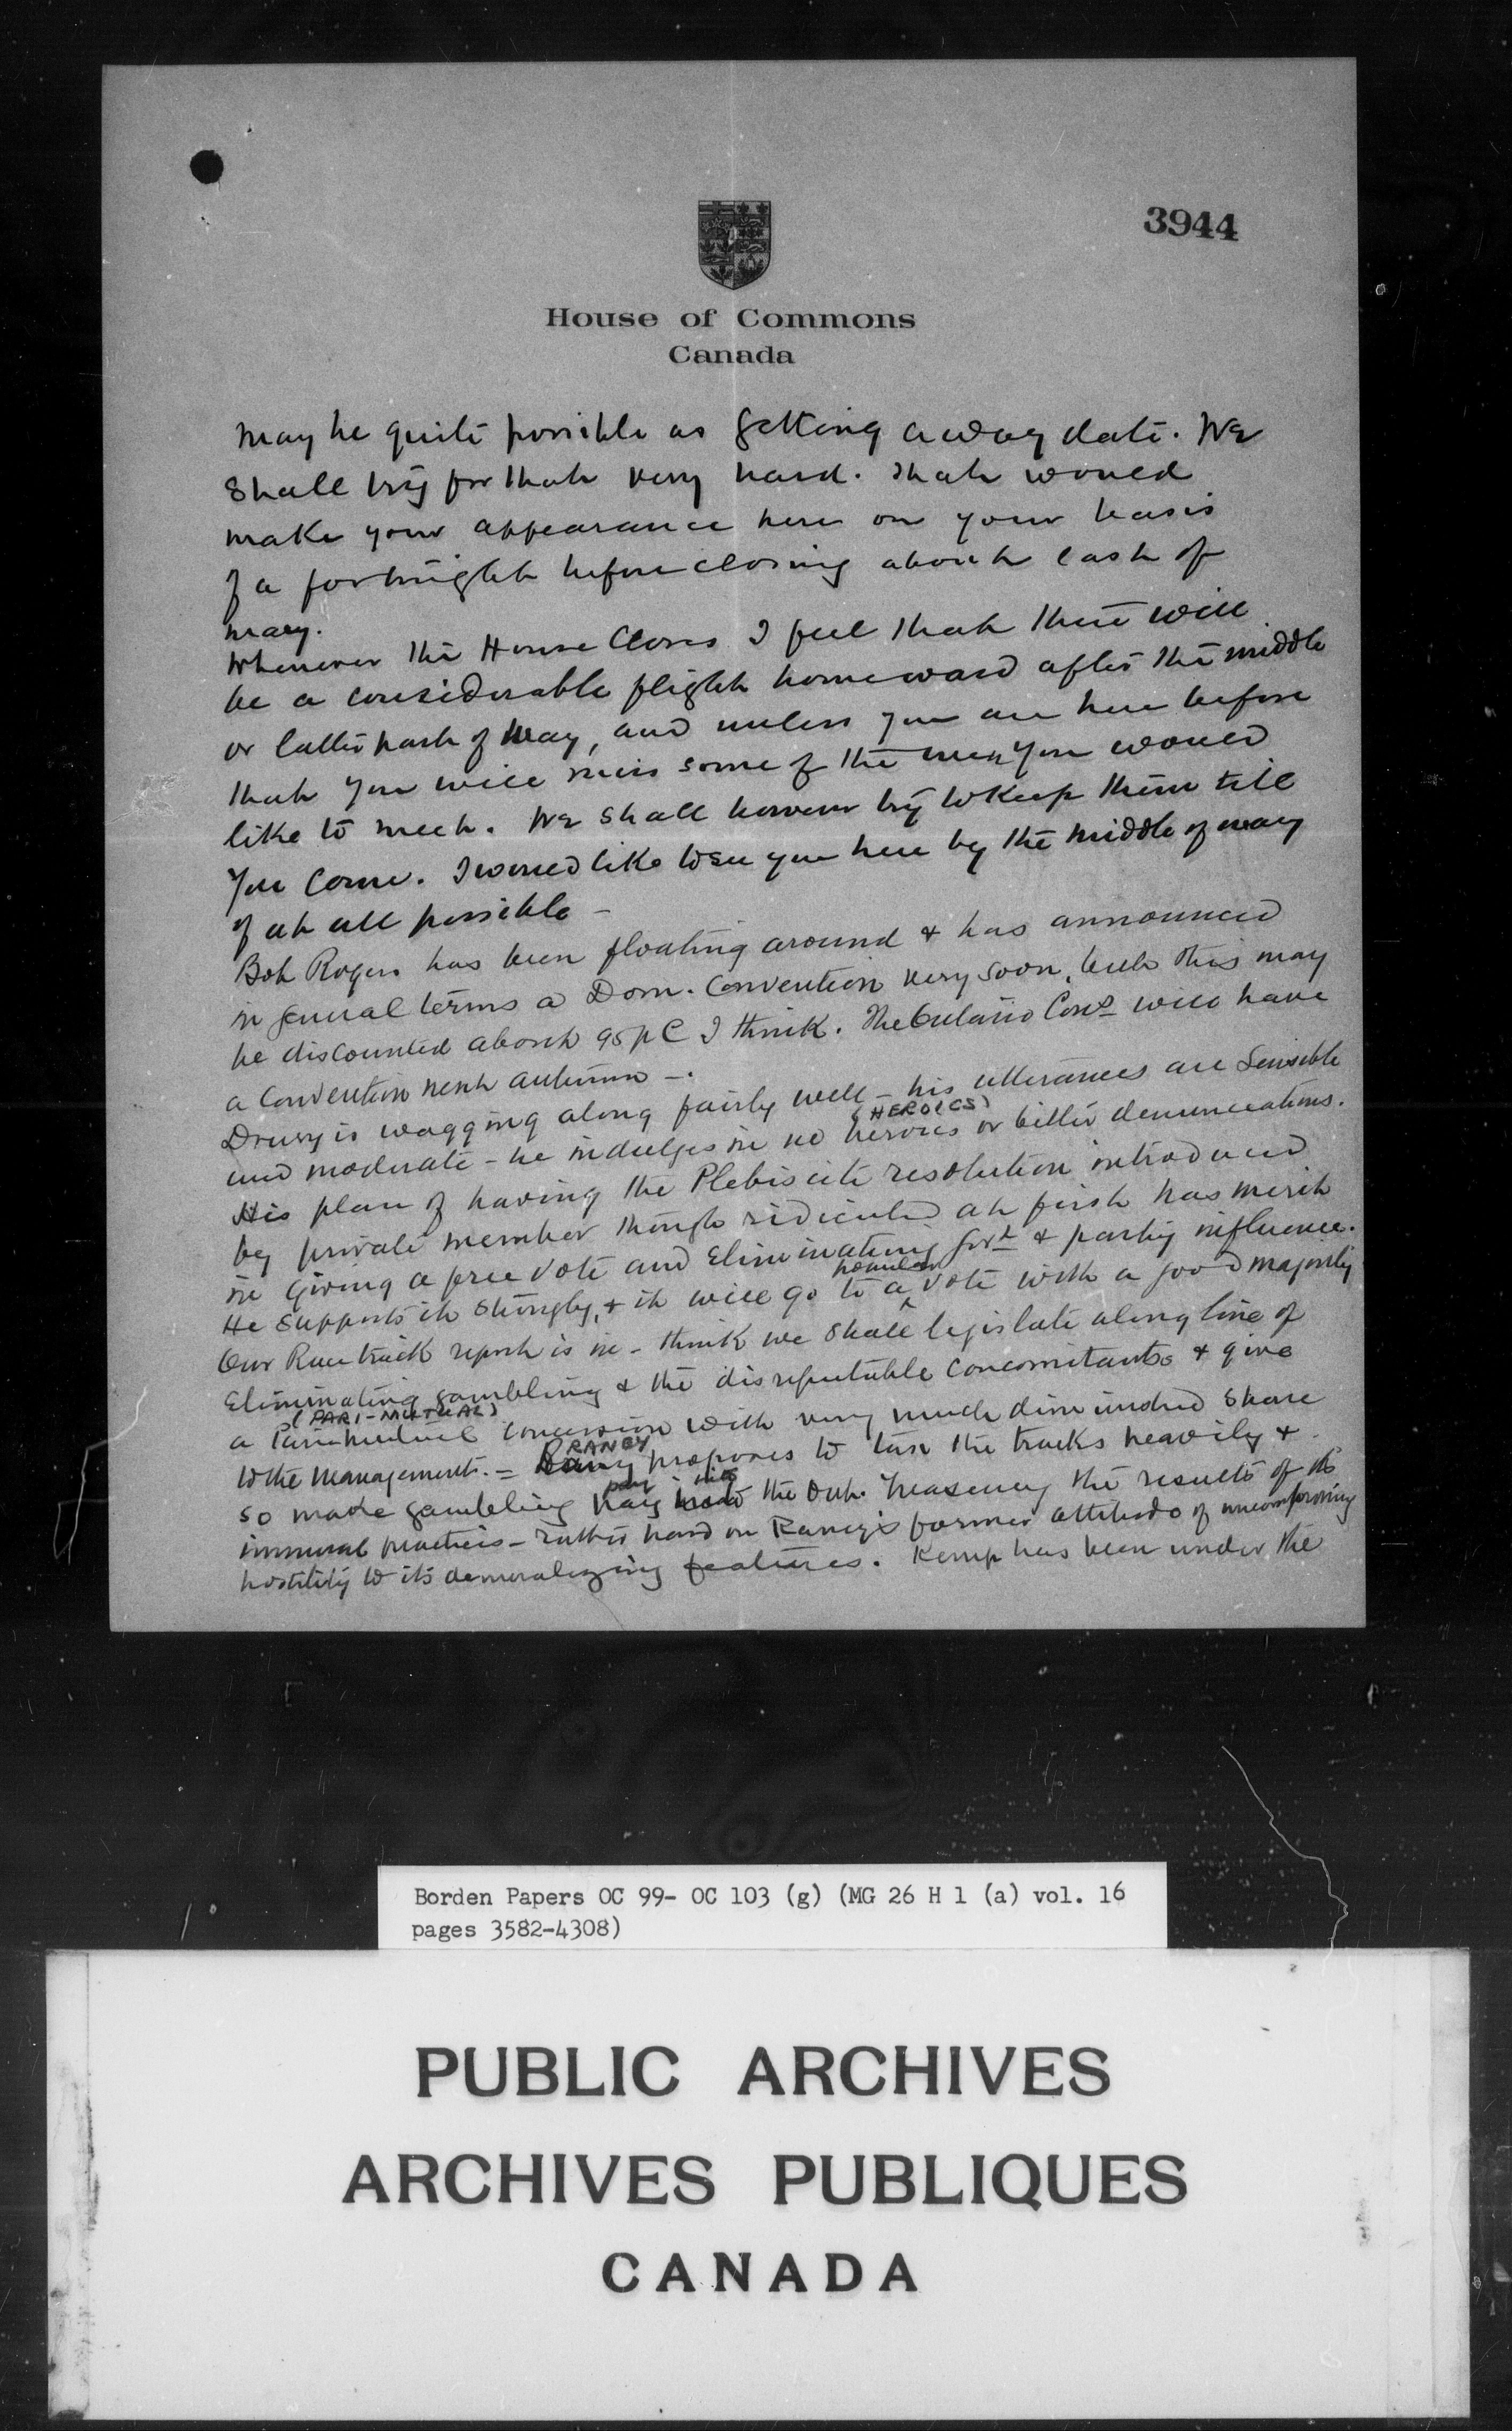 3944
House of Commons
Canada
May be quite possible as getting away date. We
shall try for that very hard. That would
make your appearance here on your basis
of a fortnight before closing about last of
May.
Whenever the House closes I feel that there will
be a considerable flight homeward after the middle
or latter part of May, and unless you are here before
that you will miss some of the men you would
like to meet. We shall however try to keep them till
you come. I would like to see you here by the middle of May
if at all possible –
Bob Rogers has been floating around & has announced
in general terms a Dom. Convention very soon, but this may
be discounted about 95 p C I think. The Ontario Cons will have
a Convention next autumn –.
Drury is wagging along fairly well – his utterances are sensible
(HEROICS)
and moderate – he indulges in no heroics or bitter denunciations.
His plan of having the Plebiscite resolution introduced
by private member though ridiculed at first has merit
in giving a free vote and eliminating Govt & party influence.
popular
He supports it strongly, & it will go to a ^ vote with a good majority
Our Race track report is in – think we shall legislate along line of
eliminating gambling & the disreputable concomitants & give
(PARI-MUTUAL)
a Parimutuel concession with very much diminished share
RANEY
to the Management. = Raney proposes to tax the tracks heavily &
pay into
so made gambling pay into the Ont. Treasury the results of its
immoral practices – rather hard on Raney's former attitude of uncompromising
hostility to its demoralizing features. Kemp has been under the
Borden Papers OC 99- OC 103 (g) (MG 26 H 1 (a) vol. 16
pages 3582-4308)
PUBLIC ARCHIVES
ARCHIVES PUBLIQUES
CANADA